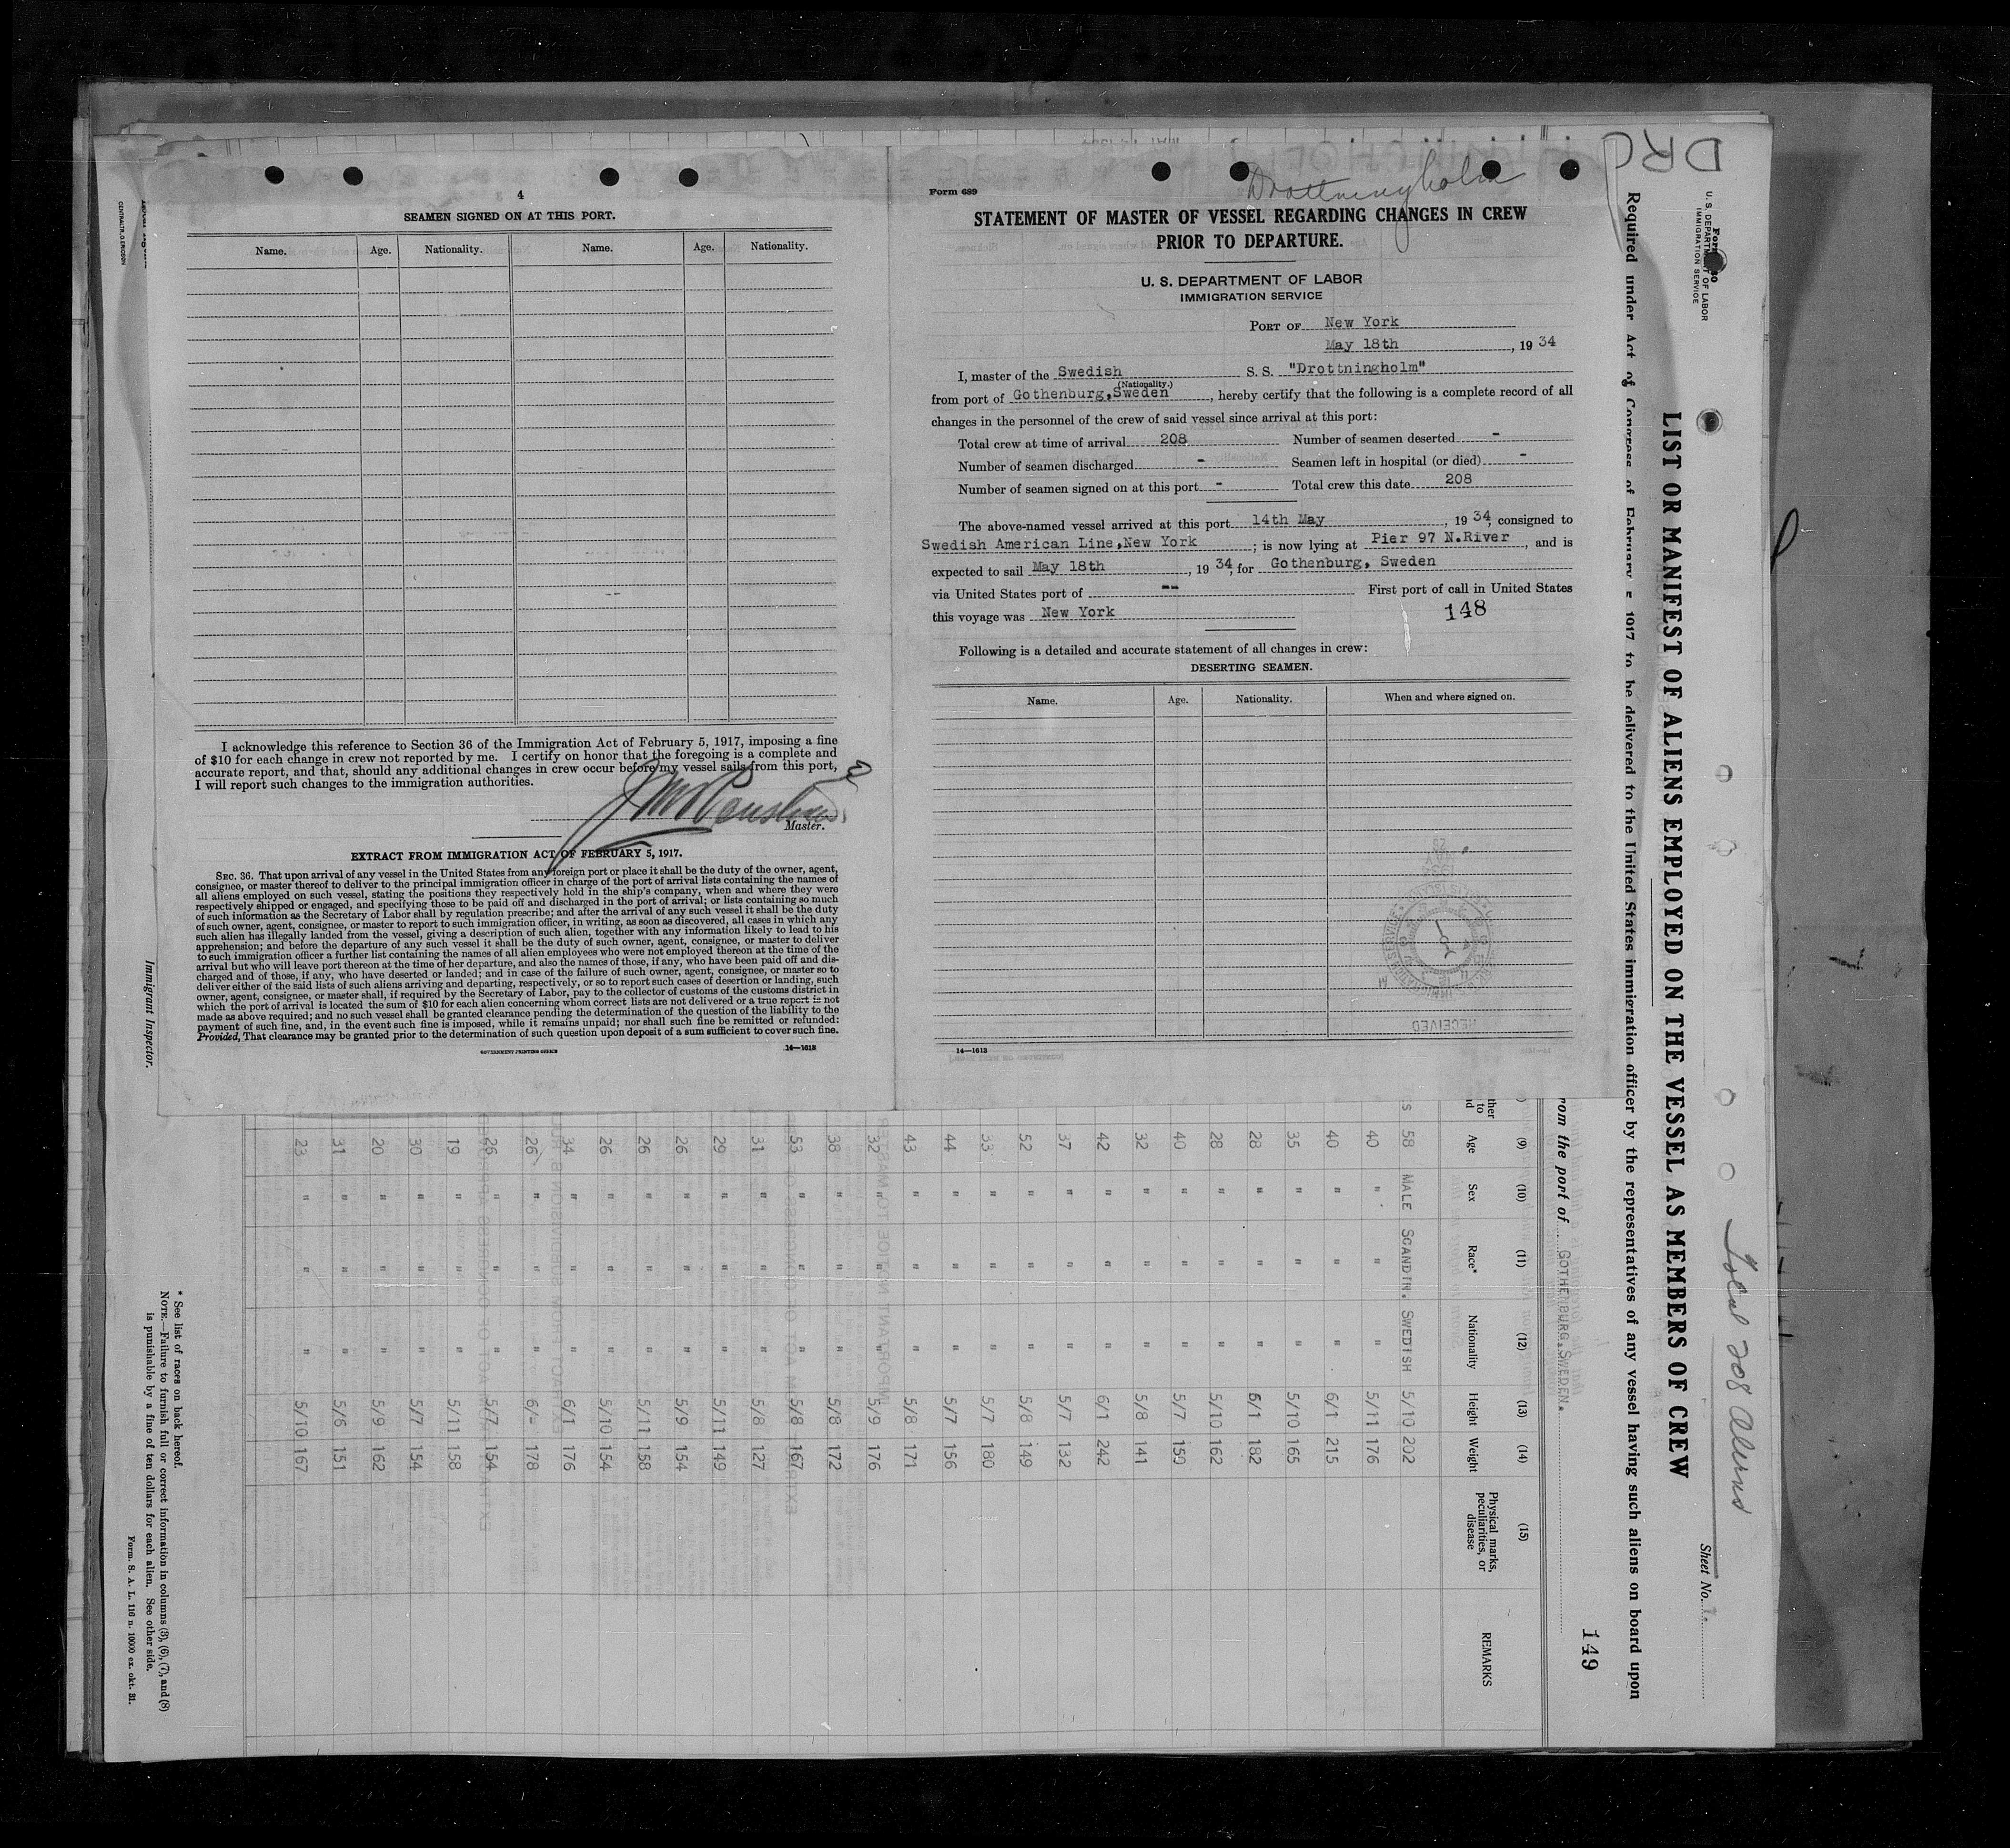 4
SEAMEN SIGNED ON AT THIS PORT.
Name. Age. Nationality. Name. Age. Nationality.
I acknowledge this reference to Section 36 of the Immigration Act of February 5, 1917, imposing a fine
of $10 for each change in crew not reported by me. I certify on honor that the foregoing is a complete and
accurate report, and that, should any additional changes in crew occur before my vessel sails from this port,
I will report such changes to the immigration authorities.
Master.
EXTRACT FROM IMMIGRATION ACT OF FEBRUARY 5, 1917.
SEC. 36. That upon arrival of any vessel in the United States from any foreign port or place it shall be the duty of the owner, agent,
consignee, or master thereof to deliver to the principal immigration officer in charge of the port of arrival lists containing the names of
all aliens employed on such vessel, stating the positions they respectively hold in the ship's company, when and where they were
respectively shipped or engaged, and specifying those to be paid off and discharged in the port of arrival; or lists containing so much
of such information as the Secretary of Labor shall by regulation prescribe; and after the arrival of any such vessel it shall be the duty
of such owner, agent, consignee, or master to report to such immigration officer, in writing, as soon as discovered, all cases in which any
such alien has illegally landed from the vessel, giving a description of such alien, together with any information likely to lead to his
apprehension; and before the departure of any such vessel it shall be the duty of such owner, agent, consignee, or master to deliver
to such immigration officer a further list containing the names of all alien employees who were not employed thereon at the time of the
arrival but who will leave port thereon at the time of her departure, and also the names of those, if any, who have been paid off and dis-
charged and of those, if any, who have deserted or landed; and in case of the failure of such owner, agent, consignee, or master so to
deliver either of the said lists of such aliens arriving and departing, respectively, or so to report such cases of desertion or landing, such
owner, agent, consignee, or master shall, if required by the Secretary of Labor, pay to the collector of customs of the customs district in
which the port of arrival is located the sum of $10 for each alien concerning whom correct lists are not delivered or a true report is not
made as above required; and no such vessel shall be granted clearance pending the determination of the question of the liability to the
payment of such fine, and, in the event such fine is imposed, while it remains unpaid; nor shall such fine be remitted or refunded:
Provided, That clearance may be granted prior to the determination of such question upon deposit of a sum sufficient to cover such fine.
GOVERNMENT PRINTING OFFICE 14—1613
Form 689
Drottningholm
STATEMENT OF MASTER OF VESSEL REGARDING CHANGES IN CREW
PRIOR TO DEPARTURE.
U. S. DEPARTMENT OF LABOR
IMMIGRATION SERVICE
PORT OF New York
May 18th, 1934
I, master of the Swedish S. S. "Drottningholm"
(Nationality.)
from port of Gothenburg,Sweden, hereby certify that the following is a complete record of all
changes in the personnel of the crew of said vessel since arrival at this port:
Total crew at time of arrival 208 Number of seamen deserted -
Number of seamen discharged - Seamen left in hospital (or died) -
Number of seamen signed on at this port - Total crew this date 208
The above-named vessel arrived at this port 14th May, 1934, consigned to
Swedish American Line,New York; is now lying at Pier 97 N.River, and is
expected to sail May 18th, 1934, for Gothenburg, Sweden
via United States port of -- First port of call in United States
this voyage was New York 148
Following is a detailed and accurate statement of all changes in crew:
DESERTING SEAMEN.
Name. Age. Nationality. When and where signed on.
14—1613
RECEIVED
DRO
U. S. DEPARTMENT OF LABOR
IMMIGRATION SERVICE
Total 208 aliens
Sheet No. 1.
LIST OR MANIFEST OF ALIENS EMPLOYED ON THE VESSEL AS MEMBERS OF CREW
Required under Act of Congress of February 5 1917 to be delivered to the United States immigration officer by the representatives of any vessel having such aliens on board upon
149
from the port of GOTHENBURG,SWEDEN.
(9) (10) (11) (12) (13) (14) (15)
Age Sex Race* Nationality Height Weight Physical marks, peculiarities, or disease REMARKS
58 MALE SCANDIN. SWEDISH 5/10 202
40 " " " 5/11 176
40 " " " 6/1 215
35 " " " 5/10 165
28 " " " 6/1 182
28 " " " 5/10 162
40 " " " 5/7 159
32 " " " 5/8 141
42 " " " 6/1 242
37 " " " 5/7 132
52 " " " 5/8 149
33 " " " 5/7 180
44 " " " 5/7 156
43 " " " 5/8 171
32 " " " 5/9 176
38 " " " 5/8 172
53 " " " 5/8 167
31 " " " 5/8 127
29 " " " 5/11 149
26 " " " 5/9 154
26 " " " 5/11 158
26 " " " 5/10 154
34 " " " 6/1 176
26 " " " 6/- 178
26 " " " 5/7 154
19 " " " 5/11 158
30 " " " 5/7 154
20 " " " 5/9 162
31 " " " 5/6 151
23 " " " 5/10 167
* See list of races on back hereof.
NOTE.—Failure to furnish full or correct information in columns (3), (6), (7), and (8)
is punishable by a fine of ten dollars for each alien. See other side.
Form. S. A. L. 116 n. 1000 ex. okt. 31.
Immigrant Inspector.
CENTRALTR.G.ERICSSON